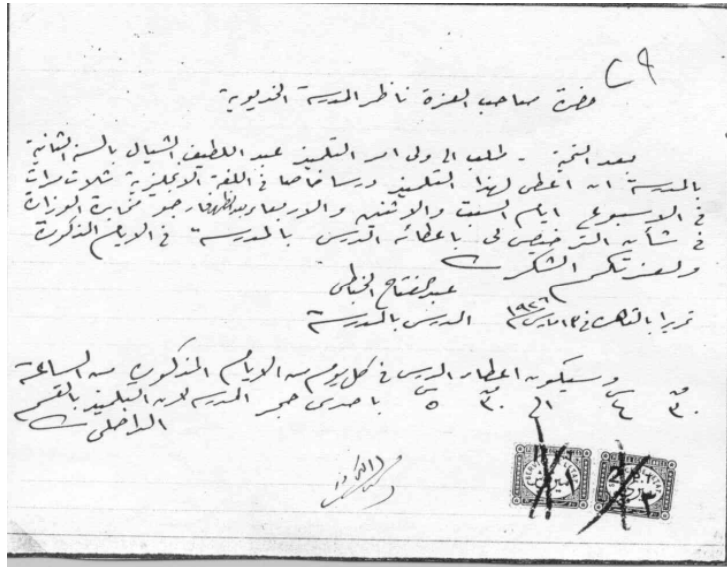 ٢٩
حضرة صاحب العزة ناظر المدرسة الخديوية
بعد التحية - طلب الى ولى امر التلميذ عبد اللطيف الشيال بالسنة الثانية
بالمدرسة ان اعطى لهذا التلميذ درسا خاصا فى اللغة الانجليزية ثلاث مرات
فى الاسبوع ايام السبت والاثنين والاربعاء وبعد الظهر فارجو مخابرة الوزارة
فى شأن الترخيص لى باعطائه الدرس بالمدرسة فى الايام المذكورة
ولعزتكم الشكر
عبد الفتاح
تحريرا بالقاهرة فى ١٣ مارس ١٩٢٦ المدرس بالمدرسة
وسيكون اعطاء الدرس فى كل يوم من الايام المذكورة من الساعة
٣٠ ق ٤ س الى ٣٠ ق ٥ س باحدى حجر المدرسة لان التلميذ بالقسم
الداخلى